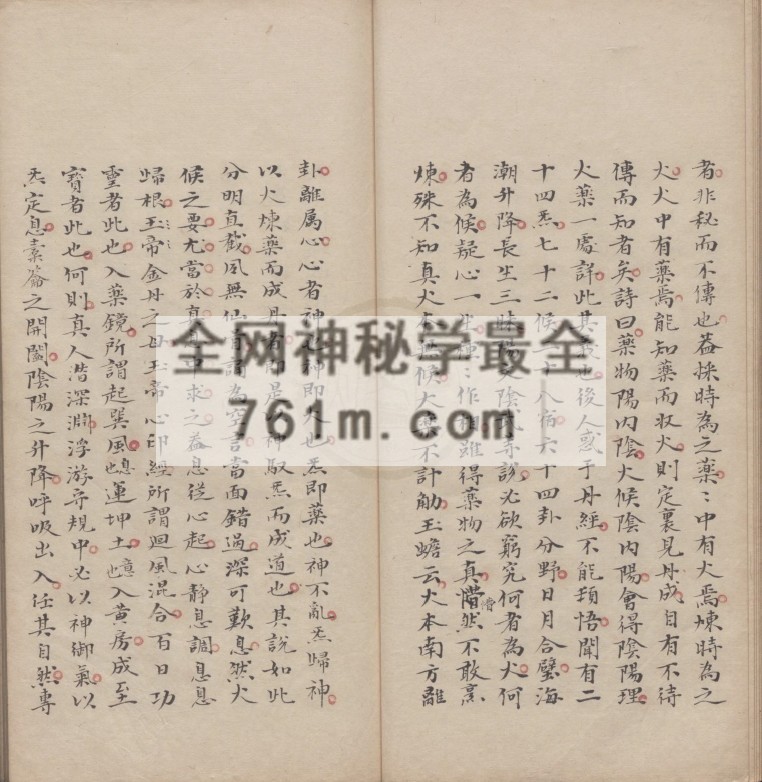 者非秘而不傳也葢採時為之藥〻中有火焉煉時為之
火火中有藥焉能知藥而収火則定裏見丹成自有不待
傳而知者矣詩曰藥物陽内陰火候陰内陽會得陰陽理
火藥一處詳此其義也後人惑于丹經不能頓悟聞有二
十四炁七十二候二十八宿六十四卦分野日月合璧海
潮升降長生三昧陽文陰武等説必欲窮究何者為火何
者為候疑心一生種〻作相雖得藥物之真懵然不敢烹
煉殊不知真火本無候大藥不計觔玉蟾云火本南方離
卦離属心心者神也神即火也炁即藥也神不亂炁歸神
以火煉藥而成丹者即是以神馭炁而成道也其説如此
分明直截夙無仙骨謂為空言當面錯過深可歎息然火
候之要尤當於真息中求之葢息従心起心静息調息息
歸根玉帝金丹之母玉帝心印經所謂迴風混合百日功
靈者此也入藥鏡所謂起巽風也息運坤土也意入黄房成至
寶者此也何則真人潛深淵浮游守規中必以神御氣以
炁定息橐籥之開闔陰陽之升降呼吸出入任其自然專
全网神秘学最全
761m.com